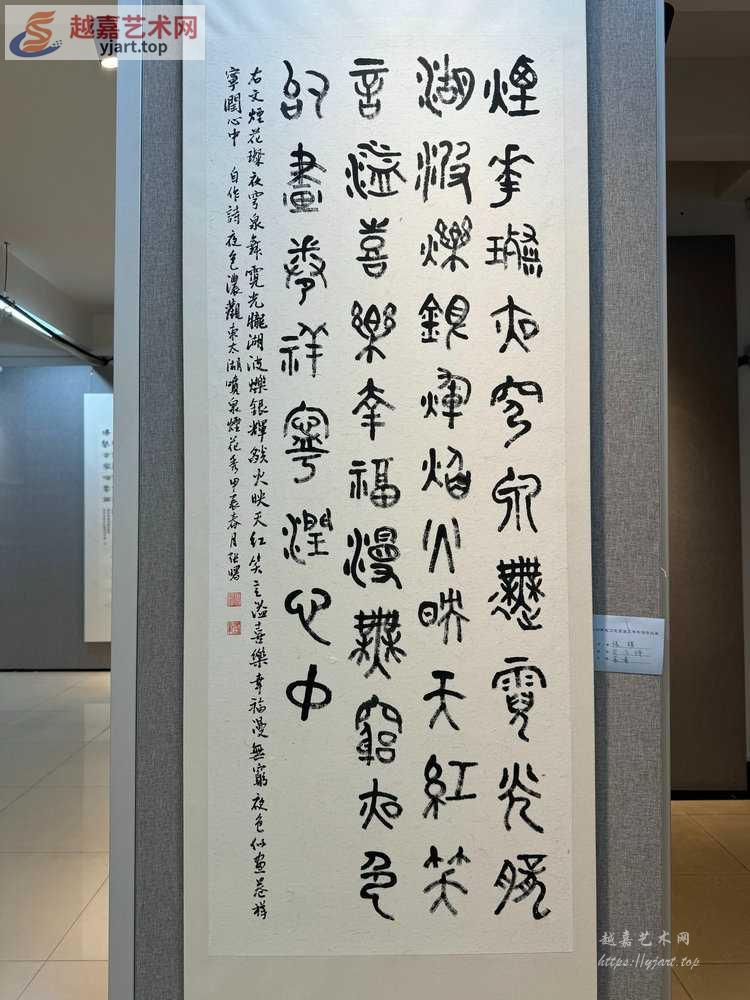 越嘉艺术网
yjart.top
煙花璨夜穹泉舞霓光朧
湖波爍銀輝焰火映天紅笑
言溢喜樂幸福漫無窮夜色
似畫卷祥寧潤心中
右文煙花璨夜穹泉舞霓光朧湖波爍銀輝燄火映天紅笑言溢喜樂幸福漫無窮夜色似畫卷祥
寧潤心中 自作詩夜色濃觀東太湖噴泉煙花秀甲辰春月張曙
越嘉艺术网
https://yjart.top